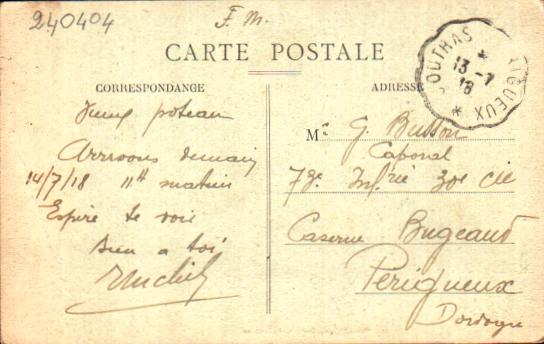 240404
F. M.
CARTE POSTALE
CORRESPONDANCE
ADRESSE
Vieux poteau
Arrivons demain
14/7/18 11h matin
Espère te voir
Bien a toi
Mr G. Buisson
Caporal
73e Inf rie 30e Cie
Caserne Bugeaud
Périgueux
Dordogne
13-7
18